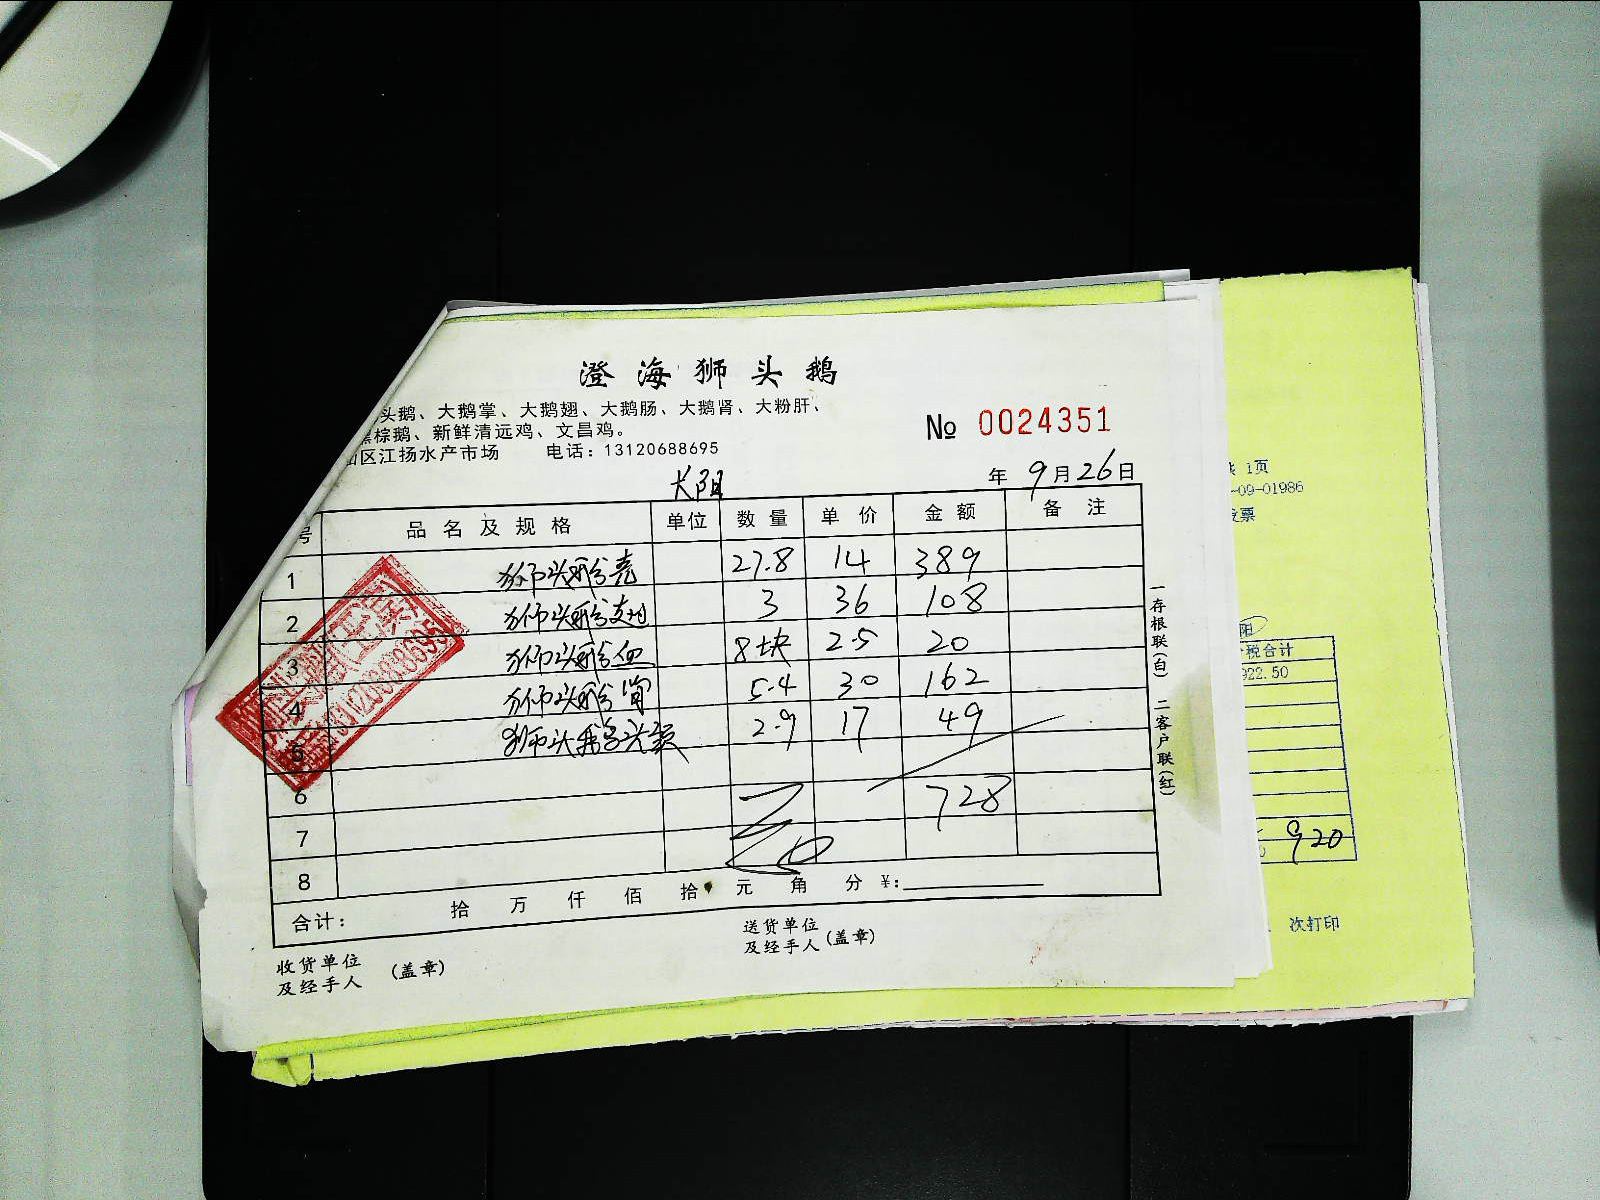 澄海狮头鹅
头鹅、大鹅掌、大鹅翅、大鹅肠、大鹅肾、大粉肝、
棕鹅、新鲜清远鸡、文昌鸡。
区江扬水产市场 电话：13120688695
№ 0024351
长阳 年 9月26日
号 品名及规格 单位 数量 单价 金额 备注
1 狮头鹅壳 27.8 14 389
2 狮头鹅翅 3 36 108
3 狮头鹅血 8块 2.5 20
4 狮头鹅胃 5.4 30 162
5 狮头鹅头颈 2.9 17 49
6 728
7
8
合计： 拾 万 仟 佰 拾 元 角 分 ¥：
收货单位
及经手人 (盖章)
送货单位
及经手人 (盖章)
一存根联(白) 二客户联(红)
1页
-09-01986
发票
阳
税合计
922.50
920
次打印